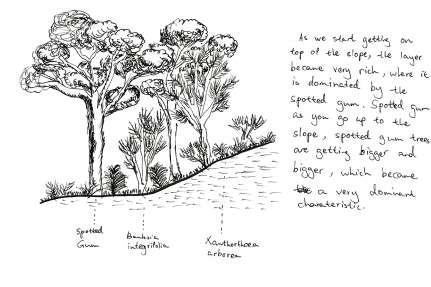 As we start getting on
top of the slope, the layer
became very rich, where it
is dominated by the
spotted gum. Spotted gum
as you go up to the
slope, spotted gum trees
are getting bigger and
bigger, which became
a very dominant
characteristic.
Spotted
Gum
Banksia
integrifolia
Xanthorrhoea
arborea